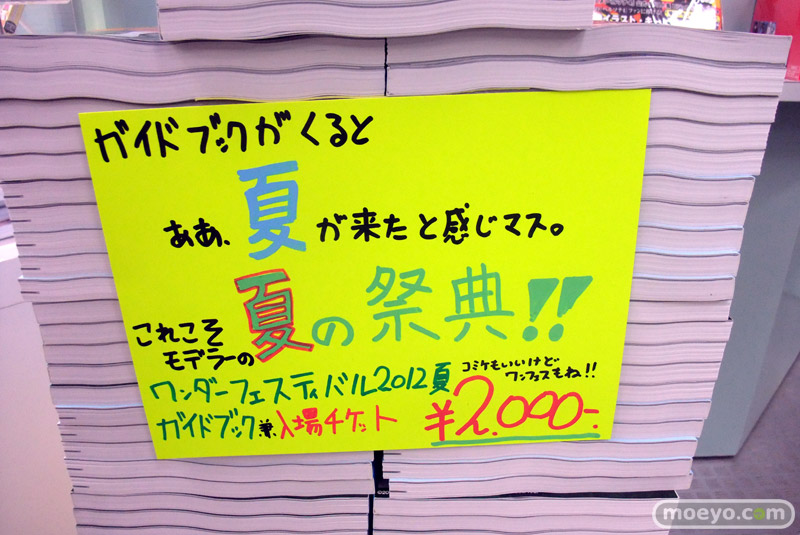 ガイドブックがくると
ああ、夏が来たと感じマス。
これこそ
モデラーの
夏の祭典!!
ワンダーフェスティバル2012夏
ガイドブック兼入場チケット
コミケもいいけど
ワンフェスもね!!
¥2,000-
moeyo.com